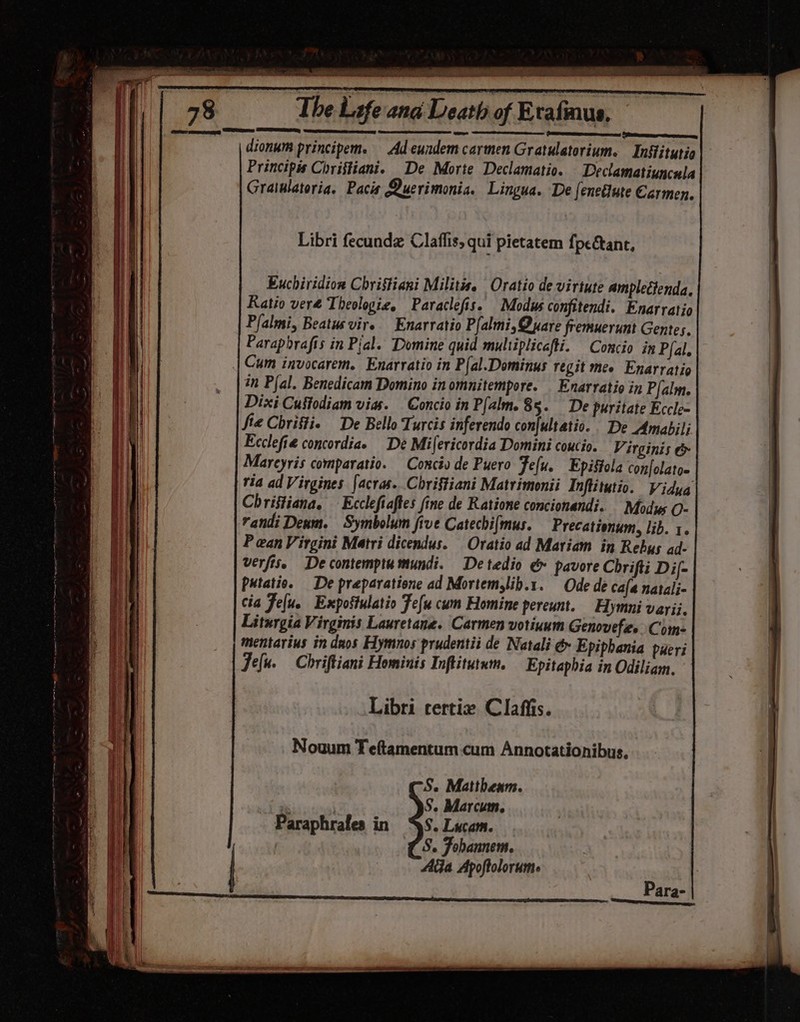 78 The Life and Death of Erasmus.
dionum principem. Ad eundem carmen Gratulatorium. Institutio
Principis Christiani. De Morte Declamatio. Declamatiuncula
Gratulatoria. Pacis Querimonia. Lingua. De senectute Carmen.
Libri fecundæ Classis, qui pietatem spectant.
Euchiridion Christiani Militis. Oratio de virtute amplectenda.
Ratio veræ Theologiæ. Paraclesis. Modus confitendi. Enarratio
Psalmi, Beatus vire. Enarratio Psalmi, Quare fremuerunt Gentes.
Paraphrasis in Psal. Domine quid multiplicasti. Concio in Psal.
Cum invocarem. Enarratio in Psal. Dominus regit me. Enarratio
in Psal. Benedicam Domino in omni tempore. Enarratio in Psalm.
Dixi Custodiam vias. Concio in Psalm. 85. De puritate Eccle-
siæ Christi. De Bello Turcis inferendo consultatio. De Amabili
Ecclesiæ concordia. De Misericordia Domini coucio. Virginis &
Martyris comparatio. Concio de Puero Jesu. Epistola consolato-
ria ad Virgines sacras. Christiani Matrimonii Institutio. Vidua
Christiana. Ecclesiastes sine de Ratione concionandi. Modus O-
randi Deum. Symbolum sive Catechismus. Precationum, lib. 1.
Pæan Virgini Matri dicendus. Oratio ad Mariam in Rebus ad-
versis. De contemptu mundi. De tedio & pavore Christi Dis-
putatio. De præparatione ad Mortem, lib. 1. Ode de casa natali-
cia Jesu. Expostulatio Jesu cum Homine pereunt. Hymni varii.
Liturgia Virginis Lauretanæ. Carmen votiuum Genovefæ. Com-
mentarius in duos Hymnos prudentii de Natali & Epiphania pueri
Jesu. Christiani Hominis Institutum. Epitaphia in Odiliam.
Libri tertiæ Classis.
Nouum Testamentum cum Annotationibus.
Paraphrases in
S. Mattheum.
S. Marcum.
S. Lucam.
S. Johannem.
Acta Apostolorum.
Para-